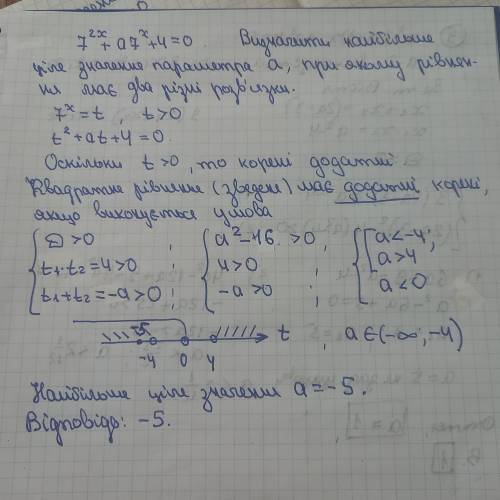 7^{2x}+a7^x+4=0 Визначити найбільше
ціле значення параметра a, при якому рівнен-
ня має два різні розв'язки.
7^x=t, t>0
t²+at+4=0.
Оскільки t>0, то корені додатні.
Квадратне рівняння (зведене) має додатні корені,
якщо виконується умова
{ D>0 ; { a²-16>0 ; { [ a<-4,
t₁·t₂=4>0 ; 4>0 ; a>4
t₁+t₂=-a>0 ; -a>0 ; a<0
-5 t , a∈(-∞,-4)
-4 0 4
Найбільше ціле значення a=-5.
Відповідь: -5.